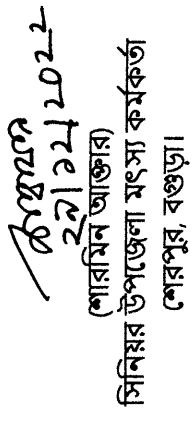 ২৯/১২/২০২২
(শারমিন আক্তার)
সিনিয়র উপজেলা মৎস্য কর্মকর্তা
শেরপুর, বগুড়া।